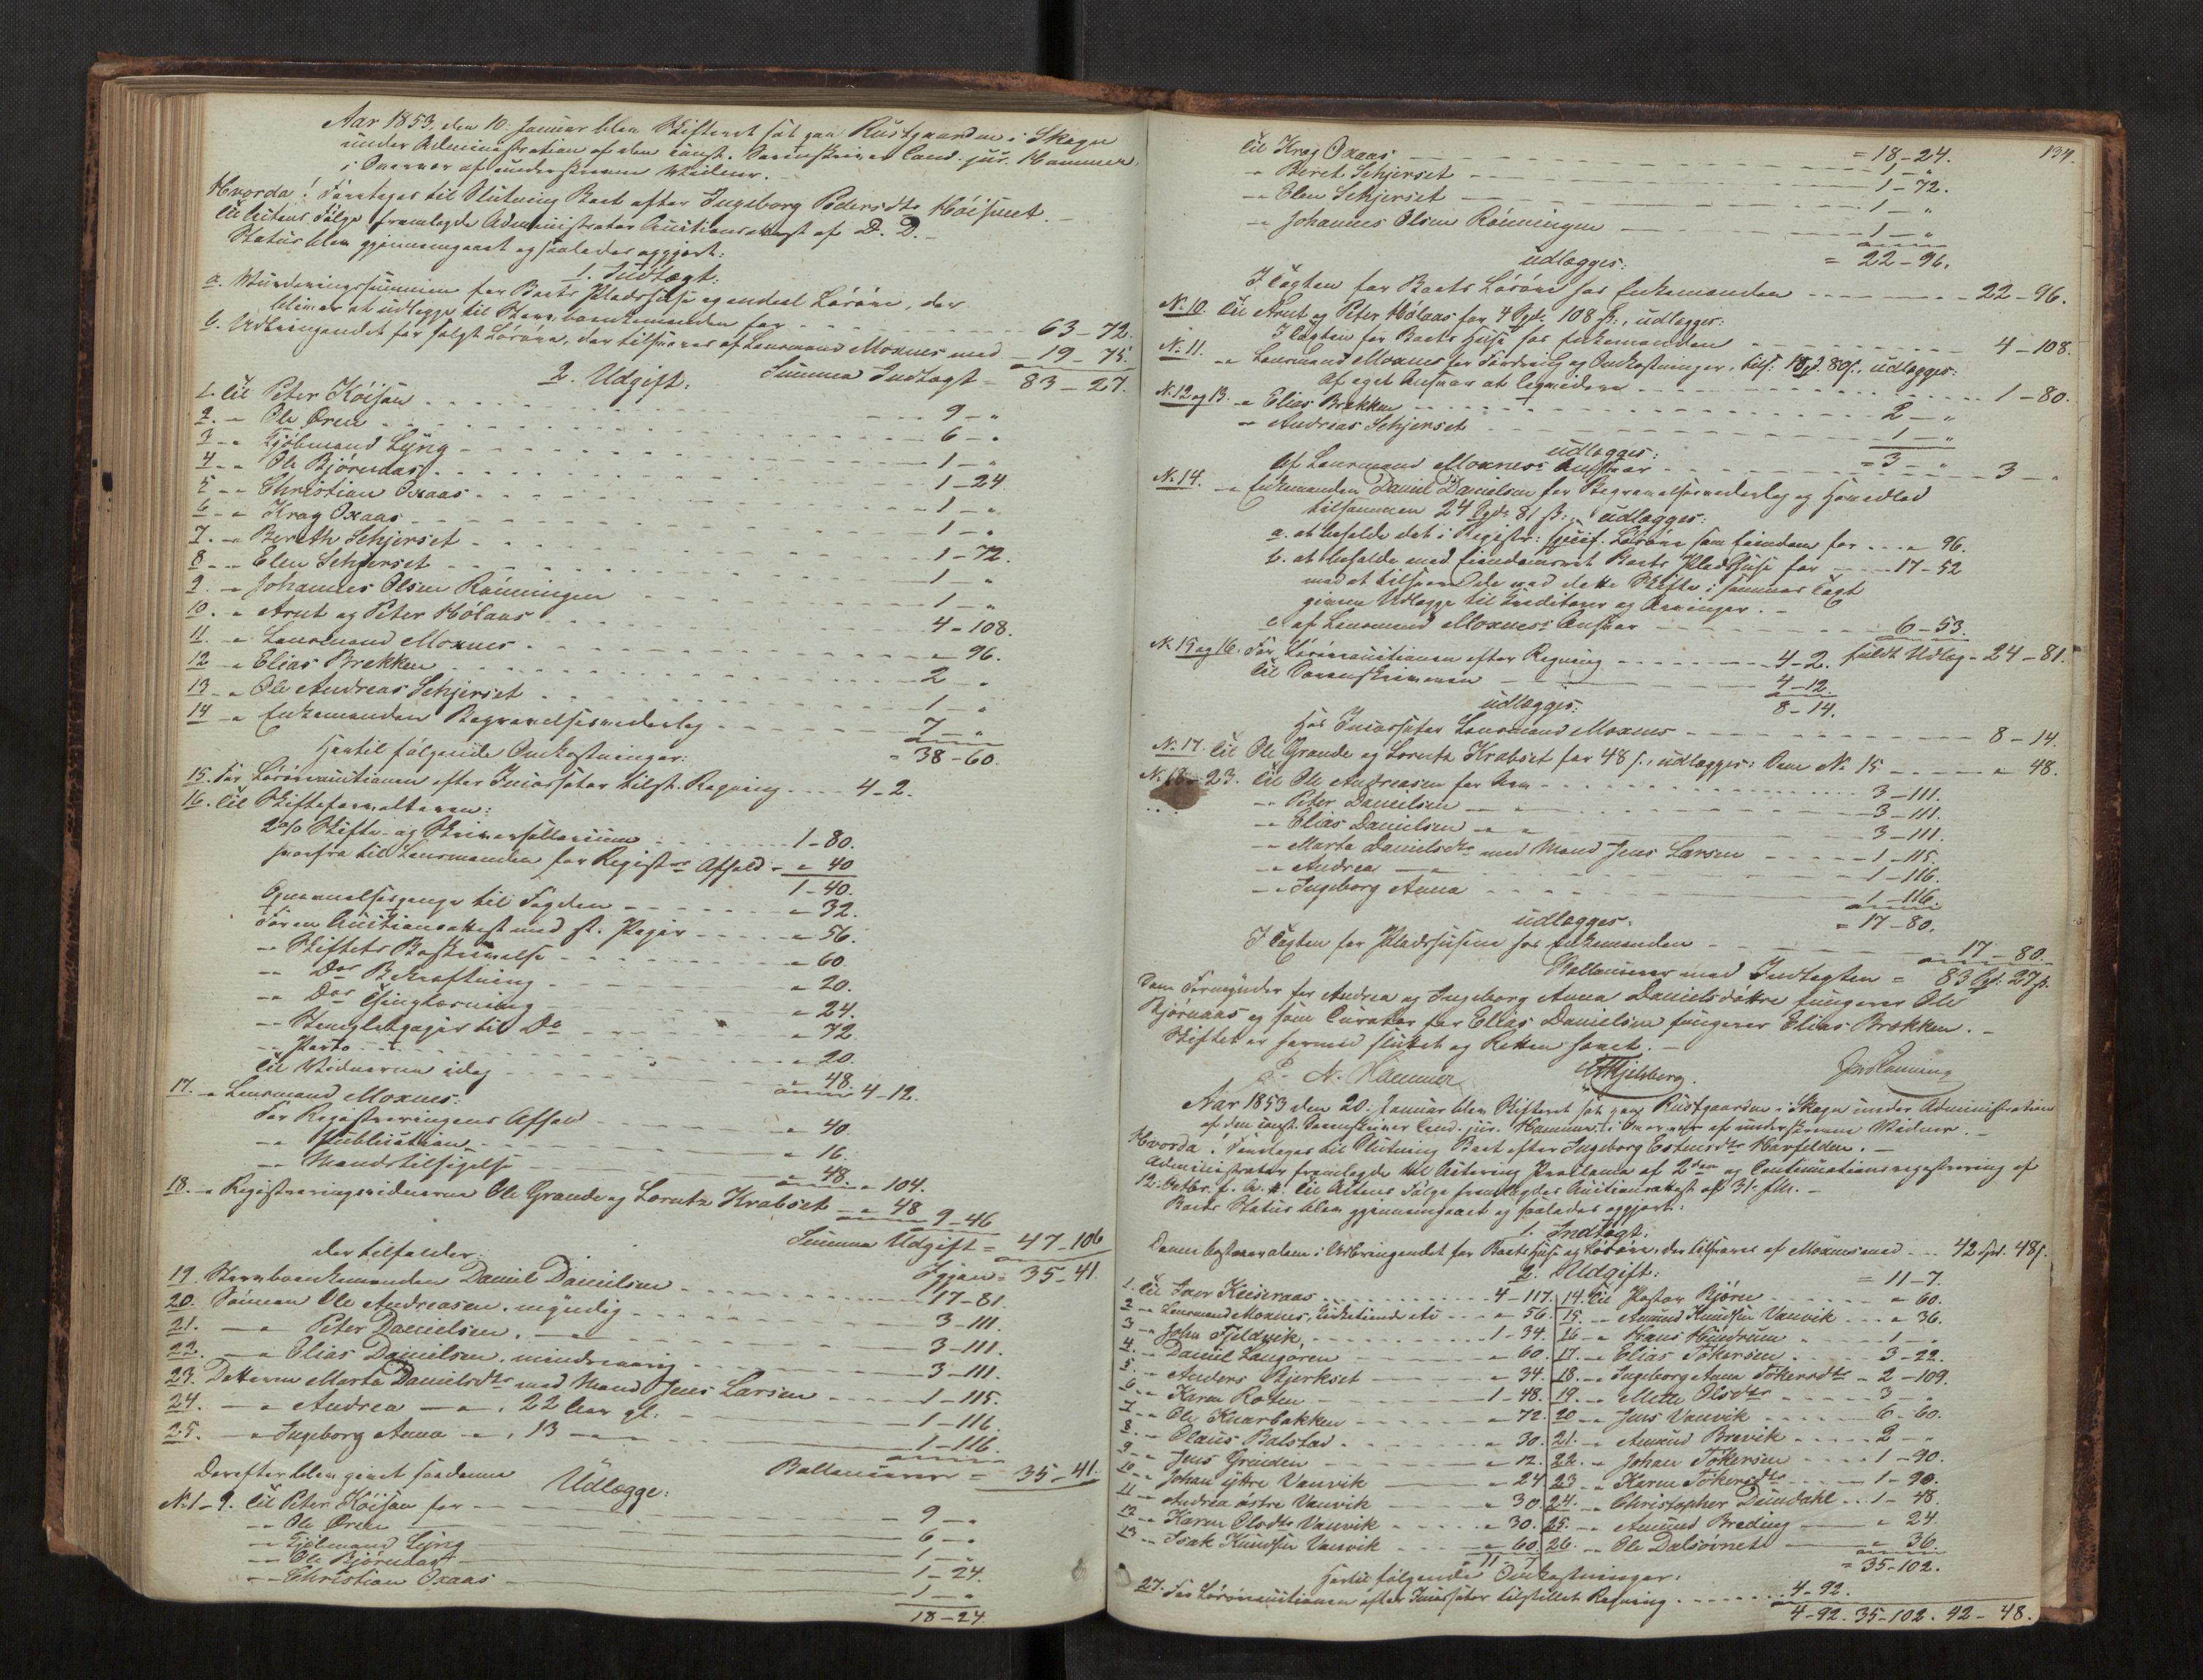 Aar 1853, den 10. Januar blev Skifteret sat paa Rustgaarden i Skogn
under Administration af den const. Sorenskriver Cand. jur. Hammer,
i Overvær af underskrevne Vidner.
Hvorda! Foretoges til Slutning Boet efter Ingeborg Pedersdtr Höisuet.
til Actens Fölge fremlagde Administrator Auctionsattest af D. D.
Status blev gjennemgaaet og saaledes opgjort:
1. Indtægt:
a. Vurderingssummen for Boets Pladshuse og endeel Lösöre, der
bliver at udlægge til Stervboenkemanden for 63-72.
b. Udbringendet for solgt Lösöre, der tilsvares af Lensmand Moxnes med 19-75.
Summa Indtægt = 83-27.
2. Udgift:
1. til Peter Höisan 9-"
2. -" Ole Ören 6-"
3 -" Gjöbmand Lyng 1-"
4 -" Ole Björnaas 1-24
5 -" Christian Oxaas 1-"
6 -" Krog Oxaas 1-"
7. -" Bereth Schjerset 1-72.
8 -" Elen Schjerset 1-"
9. -" Johannes Olsen Rönningen 1-"
10. -" Arnt og Peter Hölaas 4-108.
11. -" Lensmand Moxnes " 96.
12 -" Elias Brekken 2-"
13 -" Ole Andreas Schjerset 1-"
14 -" Enkemanden Begravelsesvederlag 7-"
= 38-60.
Hertil fölgende Omkostninger:
15. For Lösöreauctionen efter Incassator tilst. Regning 4-2.
16. til Skifteforvalteren:
2% Skifte- og Skriversallarium 1-80.
herfra til Lensmanden for Registr. Afhold " 40
1-40.
Opnævnelsespenge til Fogden " 32.
For en Auctionsattest med st. Papir " 56.
-" Skiftets Beskrivelse " 60.
-" Dos Bekræftning " 20.
-" Dos Thinglæsning " 24.
-" Stempletpapir til Do " 72
-" Porto " 20.
til Vidnerne idag " 48. 4-12.
17. -" Lensmand Moxnes:
For Registreringens Afhold " 40.
-" Publication " 16.
-" Mandstilsigelse " 48. " 104.
18. -" Registreringsvidnerne Ole Grande og Lorntz Krabset " 48 9-46
Summa Udgift = 47-106
Igjen = 35-41.
der tilfalder:
19 Stervboenkemanden Daniel Danielsen 17-81.
20. Sönnen Ole Andreasen, myndig 3-111.
21. -" Peter Danielsen, -" 3-111.
22. -" Elias Danielsen, mindreaarig 3-111.
23. Datteren Marta Danielsdtr med Mand Jens Larsen 1-115.
24. -" Andrea -", 22 Aar gl. 1-116.
25. -" Ingeborg Anna -", 13 -" 1-116.
Ballancerer = 35-41.
Derefter blev gjort saadanne
Udlægge:
No 1-9. til Peter Höisan for 9-"
-" Ole Ören 6-"
-" Gjöbmand Lyng 1-"
-" Ole Björnaas 1-24.
-" Christian Oxaas 1-"
18-24.
134.
= 18-24.
til Krog Oxaas 1-"
-" Beret Schjerset 1-72.
-" Elen Schjerset 1-"
-" Johannes Olsen Rönningen 1-"
= 22-96.
udlægges:
I Tagten for Boets Lösöre hos Enkemanden 22-96.
No 10. til Arnt og Peter Hölaas for 4 Spd. 108 s., udlægges:
I Tagten for Boets Huse hos Enkemanden 4-108.
No 11. -" Lensmand Moxnes for Fordring og Omkostninger, tils. 1 Spd. 80 s., udlægges:
Af eget Ansvar at liqvidere 1-80.
No 12 og 13. -" Elias Brekken 2-"
-" Andreas Schjerset 1-"
= 3-"
udlægges:
Af Lensmand Moxnes's Ansvar 3-"
No 14. -" Enkemanden Daniel Danielsen for Begravelsesvederlag og Hovedlod
tilsammen 24 Spd. 81 s., udlægges:
a. at beholde det i Registr: specif. Lösöre som Eiendom for " 96.
b. at beholde med Eiendomsret Boets Pladshuse for 17-52
med at tilsvare de ved dette Skifte i sammes Tagt
givne Udlægge til Creditorer og Arvinger.
c. af Lensmand Moxnes's Ansvar 6-53.
fuldt Udlæg = 24-81.
No 15 og 16. For Lösöreauctionen efter Regning 4-2.
til Sorenskriveren 4-12.
8-14.
udlægges:
Hos Incassator Lensmand Moxnes 8-14.
No 17. til Ole Grande og Lorntz Krabset for 48 s., udlægges: Som No 15 " 48.
No 18-23. til Ole Andreasen for Arv 3-111.
-" Peter Danielsen -" 3-111.
-" Elias Danielsen -" 3-111.
-" Marta Danielsdtr med Mand Jens Larsen 1-115.
-" Andrea 1-116.
-" Ingeborg Anna 1-116.
= 17-80.
udlægges:
I Tagten for Pladshusene hos Enkemanden 17-80.
Ballancerer med Indtægten = 83 Spd. 27 s.
Som Formynder for Andrea og Ingeborg Anna Danielsdöttre fungerer Ole
Björnaas og som Curator for Elias Danielsen fungerer Elias Brekken.
Skiftet er hermed sluttet og Retten hævet.
P. N. Hammer
Aar 1853 den 20. Januar blev Skifteret sat paa Rustgaarden i Skogn under Administration
af den const. Sorenskriver Cand. jur. Hammer, i Overvær af underskrevne Vidner.
Hvorda! Foretoges til Slutning Boet efter Ingeborg Estensdtr Havfelden.
Administrator fremlagde til Actering Proclama af 2den og Continuationsregistrering af
12. Octbr. f. A. til Actens Fölge fremlagdes Auctionsattest af 31. f. M.
Boets Status blev gjennemgaaet og saaledes opgjort:
1. Indtægt:
Denne bestaaer alene i Udbringendet for Boets Huse og Lösöre, der tilsvares af Moxnes med 42 Spd. 48 s.
2. Udgift:
1. til Iver Keiseraas 4-117.
2 -" Lensmand Moxnes, Kirketiende etc " 56.
3 -" John Fjeldvik 1-34.
4. -" Daniel Langören " 60.
5. -" Anders Bjerkset " 34.
6 -" Karen Roten 1-48.
7 -" Ole Knarbakken " 72.
8. -" Olaus Balstad " 30.
9 -" Jens Grinden " 12.
10 -" Johan yttre Vanvik " 24
11 -" Andrea östre Vanvik " 30.
12 -" Karen Olsdtr Vanvik " 30.
13 -" Isak Knudsen Vanvik " 60.
11-7
= 11-7.
14. til Pastor Bjørn " 60.
15. -" Amund Knudsen Vanvik " 36.
16 -" Hans Hindrum 1-"
17. -" Elias Tokersen 3-22.
18. -" Ingeborg Anna Tokersdtr 2-109.
19. -" Mette Olsdtr 3-"
20 -" Jens Vanvik 6-60.
21. -" Amund Brevik 2-"
22. -" Johan Tokersen 1-90.
23 -" Karen Tokersdtr 1-90.
24. -" Christopher Dundahl 1-48.
25. -" Amund Breding " 24.
26. -" Ole Dalsövnet " 36.
= 35-102.
Hertil fölgende Omkostninger:
27. For Lösöreauctionen efter Incassator tilstillet Regning 4-92.
4-92. 35-102. 42-48.